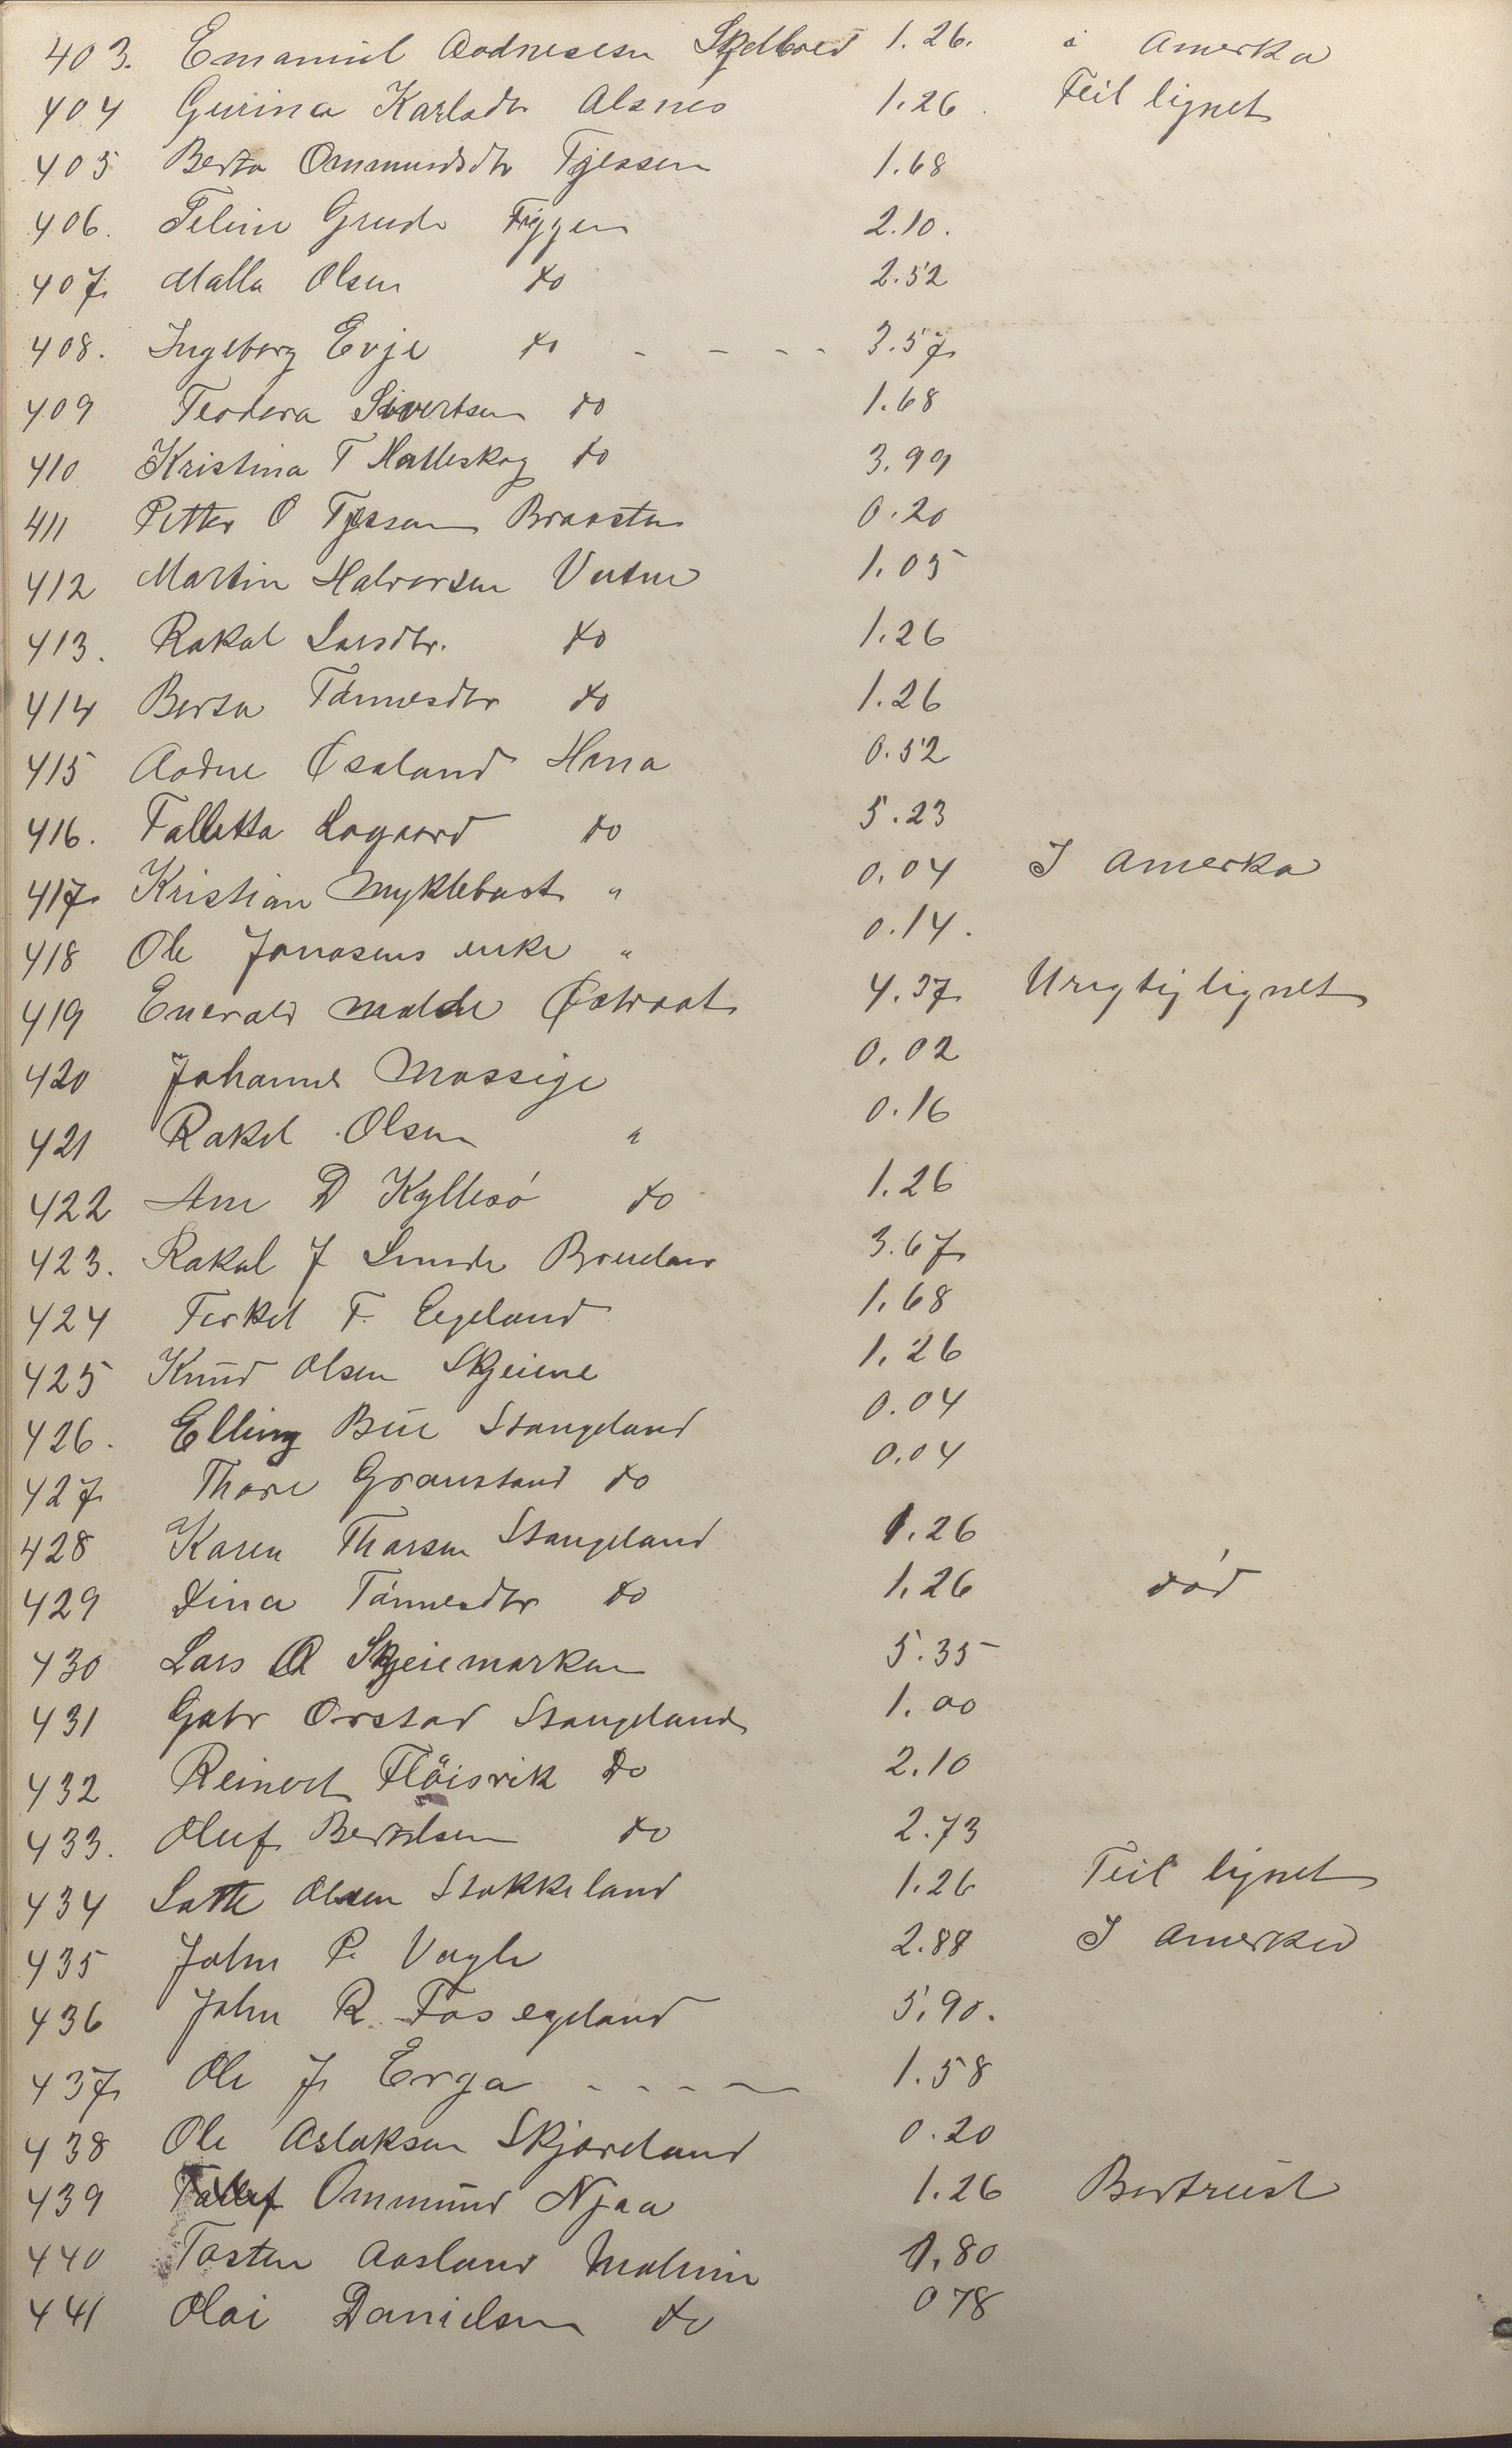 403. Emanuel Aadnesen Skjelbred 1.26. i Amerka
404 Gurina Karlsdtr Alsnes 1.26. Feil lignet
405 Berta Ommundsdtr Tjessem 1.68
406. Teline Grude Figgen 2.10.
407. Malla Olsen do 2.52
408. Ingeborg Evje do - - - - 3.57
409 Teodora Sivertsen do 1.68
410 Kristina T Malleskog do 3.99
411 Petter O Tjessem Braasten 0.20
412 Martin Halvorsen Vatne 1.05
413. Rakal Larsdtr. do 1.26
414 Berta Tønnesdtr do 1.26
415 Aadne Øsaland Hana 0.52
416. Talletta Lagaard do 5.23
417. Kristian Myklebust " 0.04 I Amerka
418 Ole Jonasens enke " 0.14.
419 Enevald Malde Østraat 4.37 Urigtig lignet
420 Johannes Massige 0.02
421 Rakel Olsen " 0.16
422 Ane D Kyllesø do 1.26
423. Rakal J Lunde Brueland 3.67
424 Terkel T. Eegeland 1.68
425 Knud Olsen Skjeiene 1.26
426. Elling Bue Stangeland 0.04
427. Thore Graustand do 0.04
428 Karen Tharsen Stangeland 1.26
429 Dina Tønnesdtr do 1.26 død
430 Lars O Skjeiemarken 5.35
431 Gabr Orstad Stangeland 1.00
432 Reinert Fløisvik Do 2.10
433. Oluf Bertelsen do 2.73
434 Latte Olsen Stokkeland 1.26 Feil lignet
435 John P. Vagle 2.88 I Amerka
436 John R. Foss egeland 5,90.
437. Ole J. Erga - - - - 1.58
438 Ole Aslaksen Skjæveland 0.20
439 Tallef Ommund Njaa 1.26 Bortreist
440 Tosten Aasland Malmin 1,80
441 Olai Danielsen do 0 78